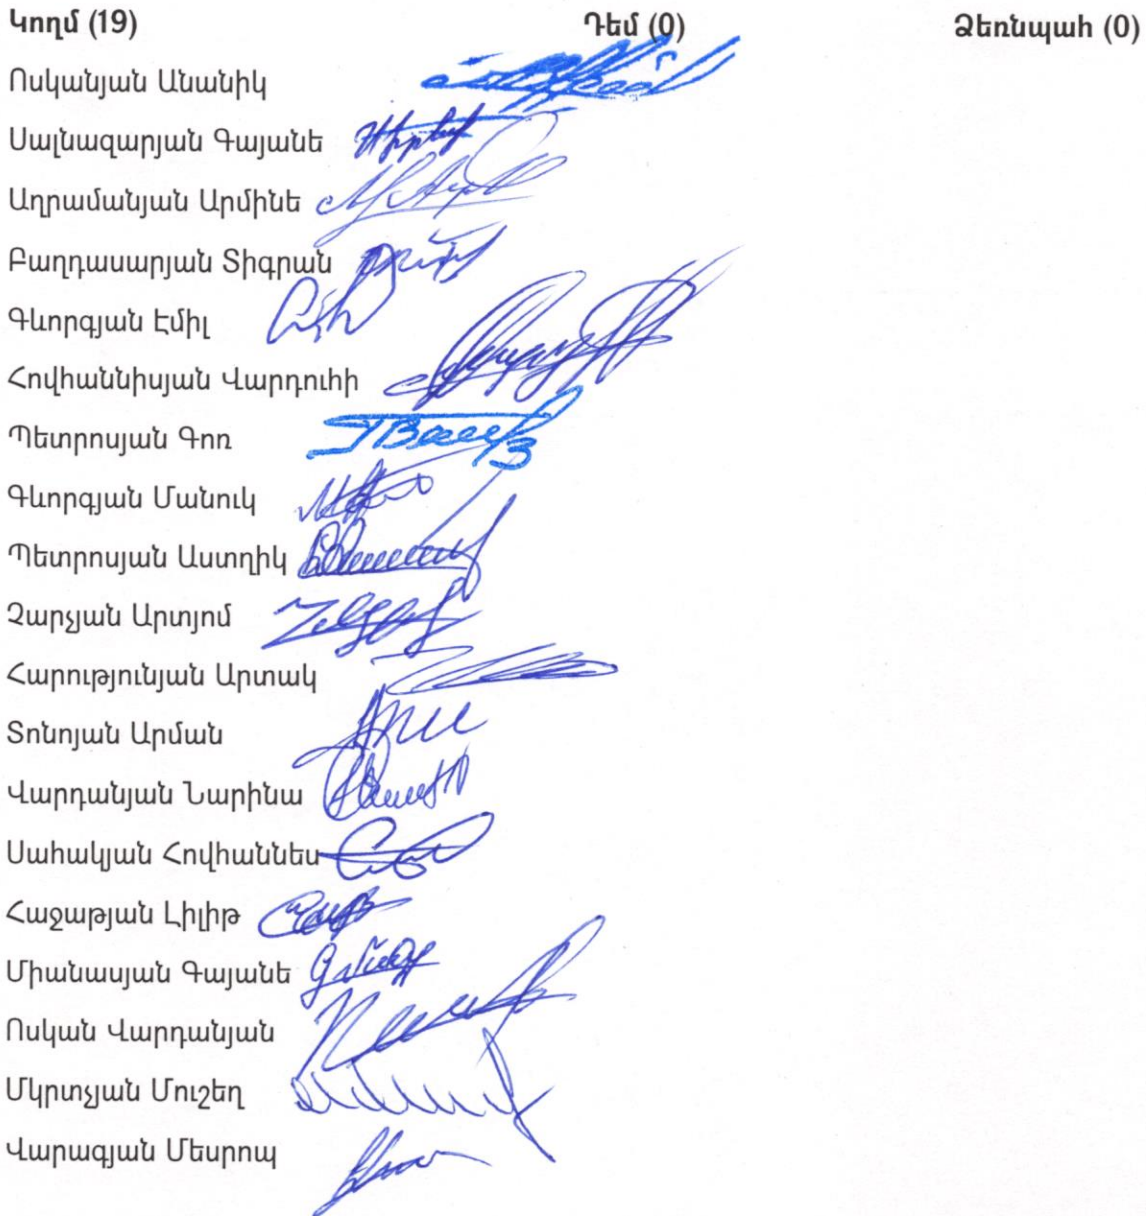 Կողմ (19) Դեմ (0) Ձեռնպահ (0)
Ոսկանյան Անանիկ
Սալնազարյան Գայանե
Աղրամանյան Արմինե
Բաղդասարյան Տիգրան
Գևորգյան Էմիլ
Հովհաննիսյան Վարդուհի
Պետրոսյան Գոռ
Գևորգյան Մանուկ
Պետրոսյան Աստղիկ
Չարչյան Արտյոմ
Հարությունյան Արտակ
Տոնոյան Արման
Վարդանյան Նարինա
Սահակյան Հովհաննես
Հաջաթյան Լիլիթ
Միանասյան Գայանե
Ոսկան Վարդանյան
Մկրտչյան Մուշեղ
Վարագյան Մեսրոպ